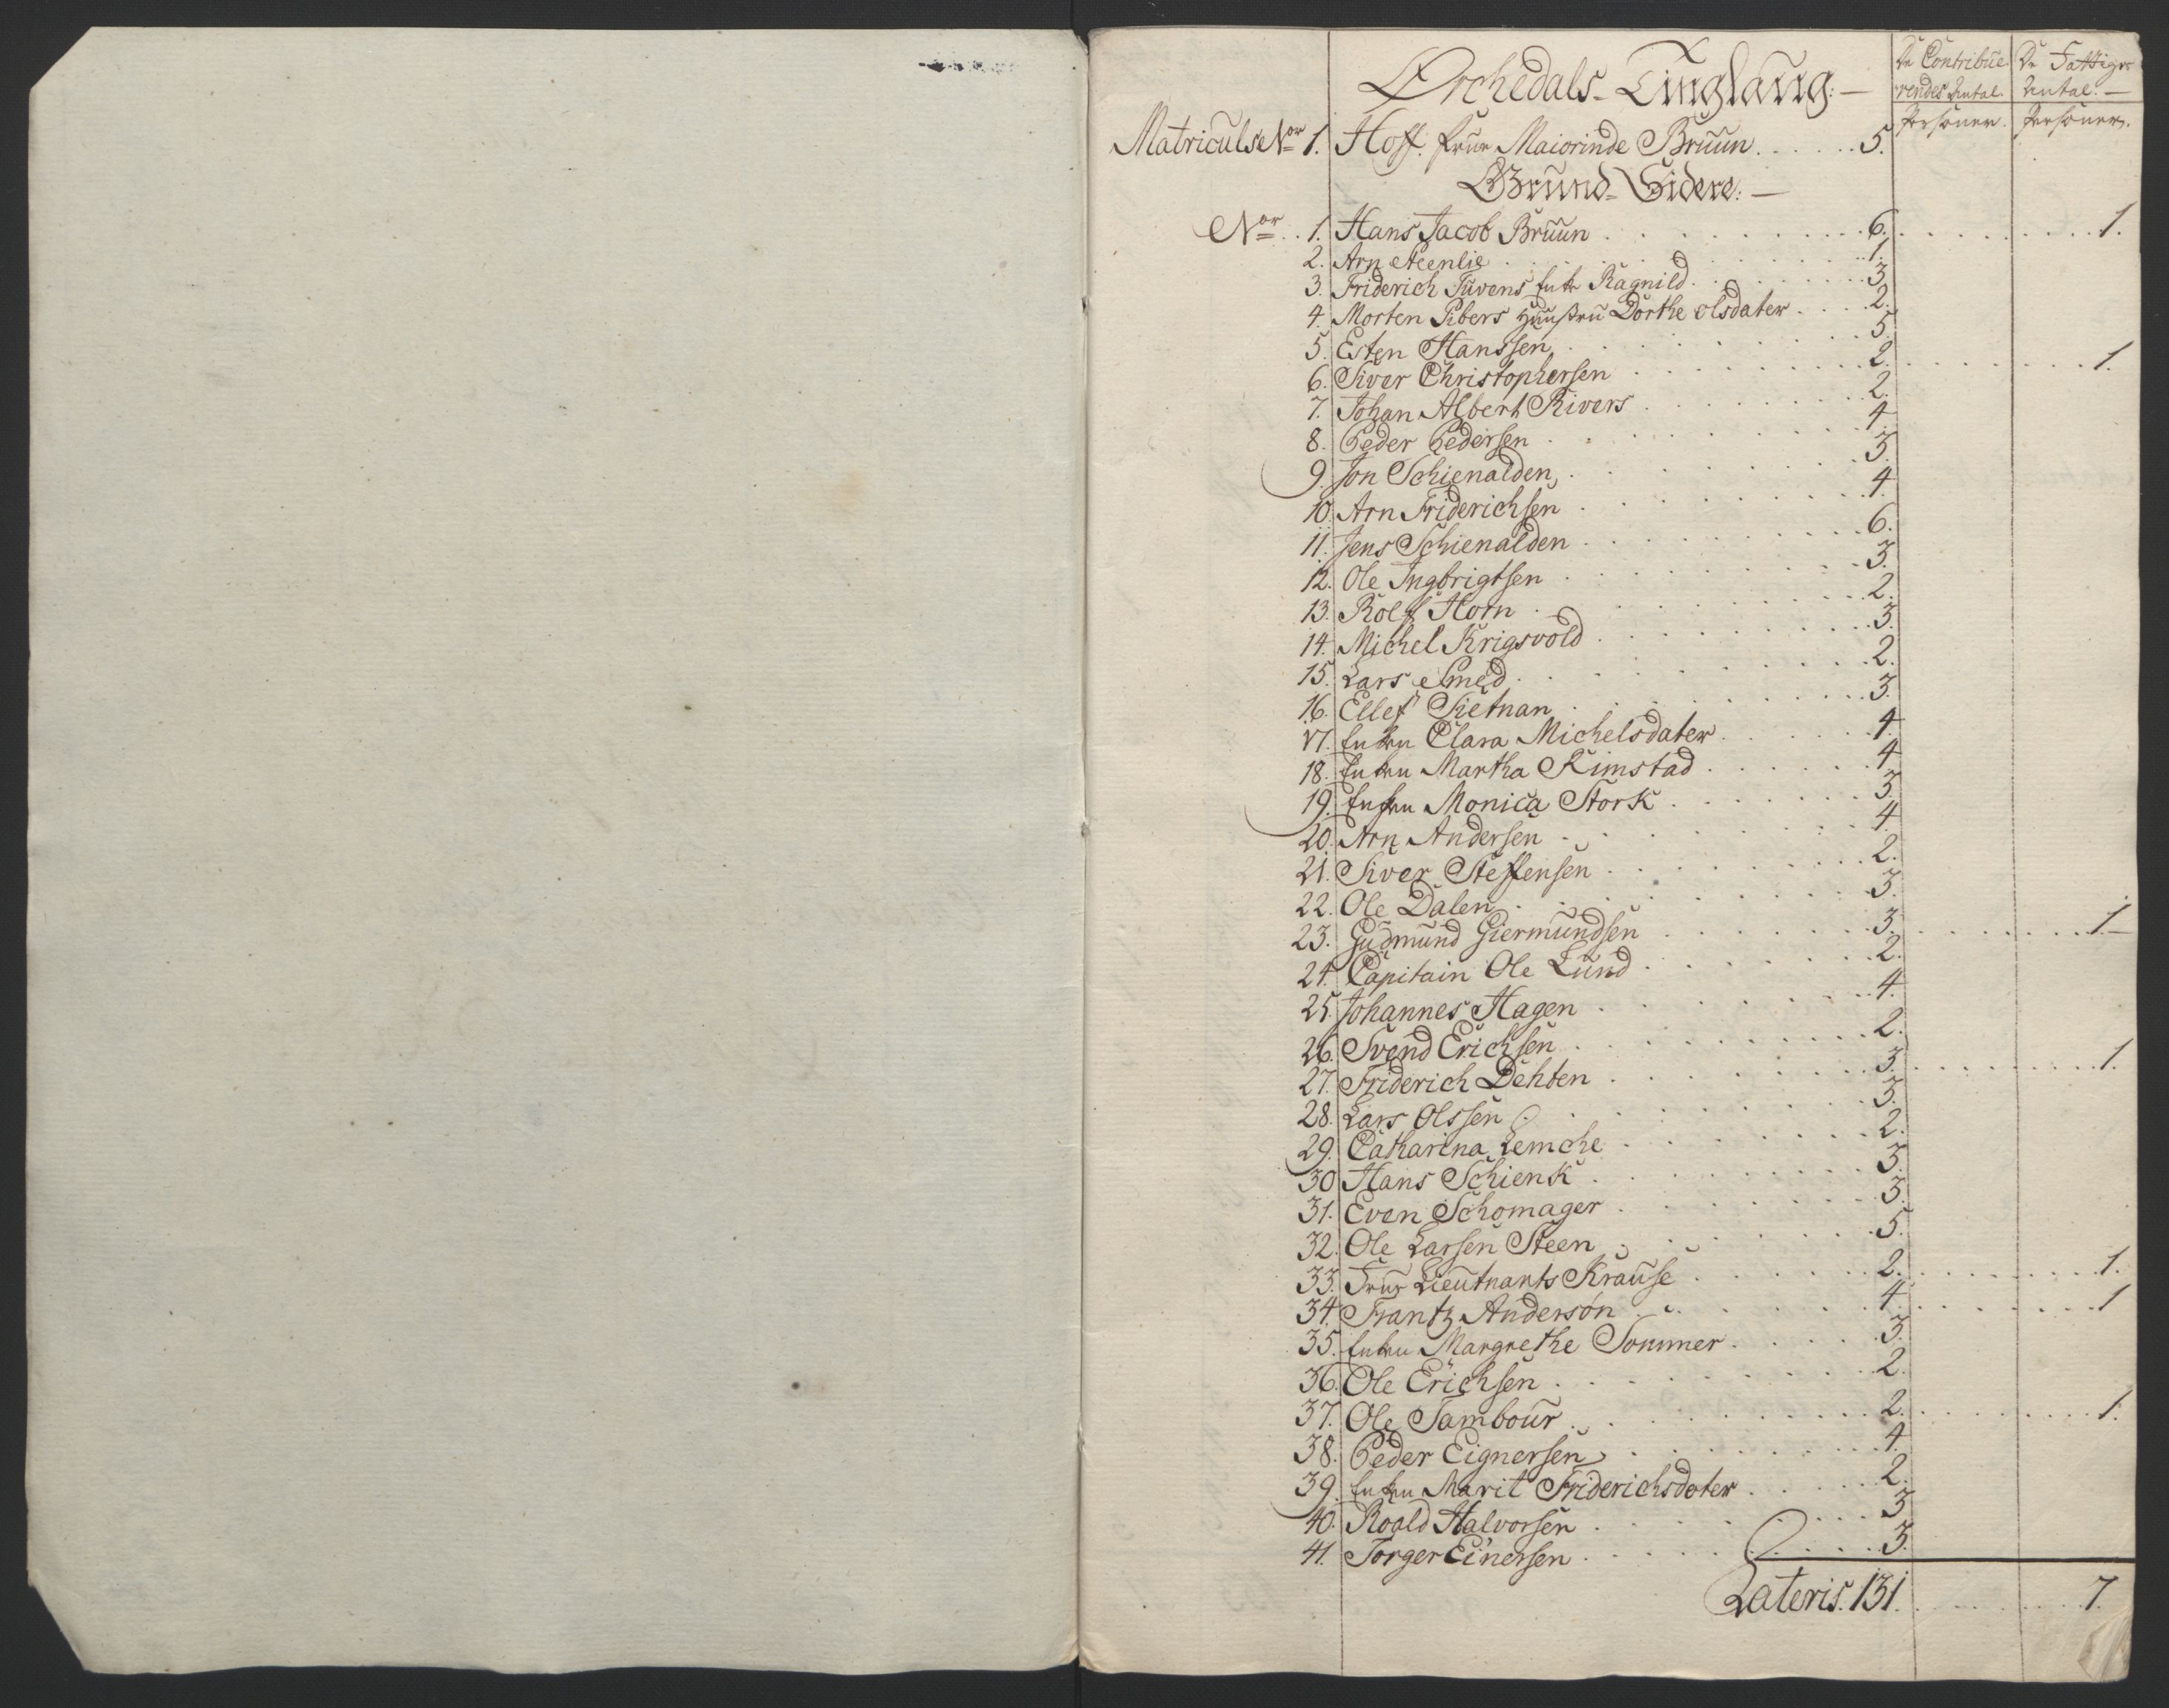 Orchedals Tinglaug:
De Contribue
rendes Antal.
Personer.
De Fattiges
Antal.
Personer.
Matriculs No 1. Hoff. frue Maiorinde Bruun . . . 5.
Grund Sidere:
Nor . . 1. Hans Jacob Bruun . . . 6. . . . 1.
2. Arn Steenlie . . . 1.
3. Friderich Juvens Enke Ragnild . . . 3
4. Morten Sibers Hustru Dorthe olsdater . . . 2.
5. Esten Hanssen . . . 5.
6. Siver Christophersen . . . 2. . . . 1.
7. Johan Albert Sivers . . . 2.
8. Peder Pedersen . . . 4.
9. Jon Schienalden . . . 3.
10. Arn Friderichsen . . . 4.
11. Jens Schienalden . . . 6.
12. Ole Ingbrigtsen . . . 3.
13. Rolf Horn . . . 2.
14. Michel Krigsvold . . . 3.
15. Lars Smed . . . 2.
16. Ellef Sietnan . . . 3.
17. Enken Clara Michelsdater . . . 4.
18. Enken Martha Kimstad . . . 4
19. Enken Monica Stork . . . 3
20. Arn Andersen . . . 4.
21. Siver Steffensen . . . 2.
22. Ole Dalen . . . 3.
23. Gudmund Giermundsen . . . 3. . . . 1.
24. Capitain Ole Lund . . . 2.
25. Johannes Hagen . . . 4.
26. Svend Erichsen . . . 2.
27. Friderich Dehten . . . 3. . . . 1.
28. Lars Olssen . . . 3.
29. Catharina Lemche . . . 2.
30. Hans Schienk . . . 3.
31. Even Schomager . . . 3.
32. Ole Larsen Steen . . . 5.
33. Frue Lieutnants Krause . . . 2. . . . 1.
34. Frantz Anderson . . . 4. . . . 1
35. Enken Margrethe Sommer . . . 3.
36. Ole Erichsen . . . 2.
37. Ole Tambour . . . 2. . . . 1.
38. Peder Eignersen . . . 4.
39. Enken Marit Friderichsdoter . . . 2.
40. Roald Halvorsen . . . 3
41. Torger Einersen . . . 3.
Lateris. 131. . . . 7.